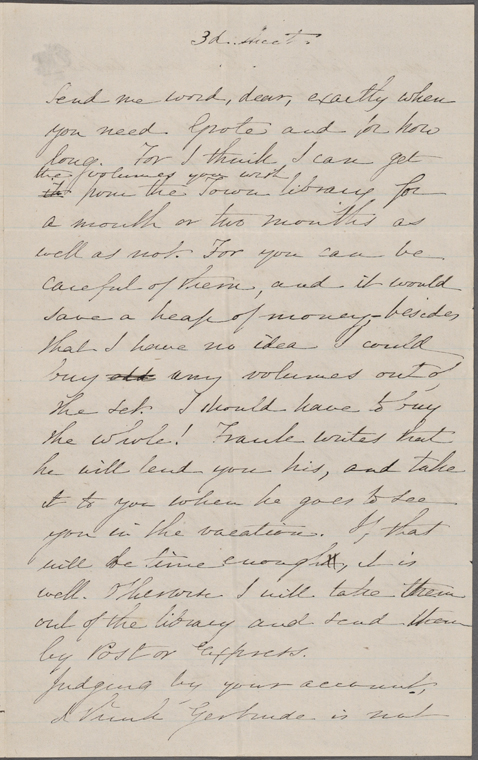 3d. sheet.
Send me word, dear, exactly when
you need Grote and for how
long. For I think I can get
the volumes you wish
from the Town library for
a month or two months as
well as not. For you can be
careful of them, and it would
save a heap of money - besides
that I have no idea I could
buy any volumes out of
the set. I should have to buy
the whole! Frank writes that
he will lend you his, and take
it to you when he goes to see
you in the vacation. If that
will be time enough, it is
well. Otherwise I will take them
out of the library and send them
by Post or Express.
Judging by your account,
I think Gertrude is not